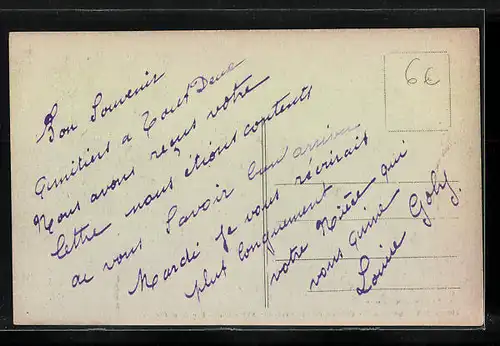 Bon Souvenir
Amitiers a Tout Deux
Nous avons reçus votre
lettre nous étions contents
de vous Savoir bien arrivée
Mardi Je vous récrirais
plus longuement
votre Nièce qui
vous aime
Louise Goby
6€